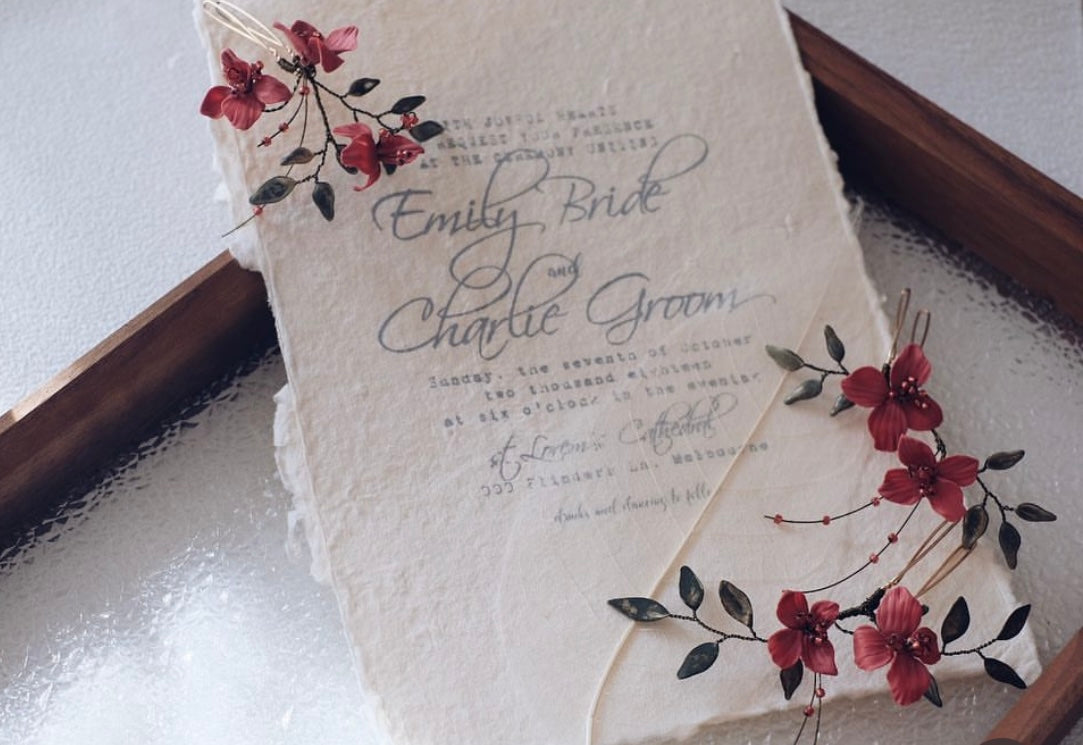 JOYFUL HEARTS
REQUEST YOUR PRESENCE
AT THE CEREMONY UNITING
Emily Bride
and
Charlie Groom
Sunday, the seventh of October
two thousand eighteen
at six o'clock in the evening
st Lorem's Cathedral
Flinders Ln. Melbourne
drinks and dancing to follo